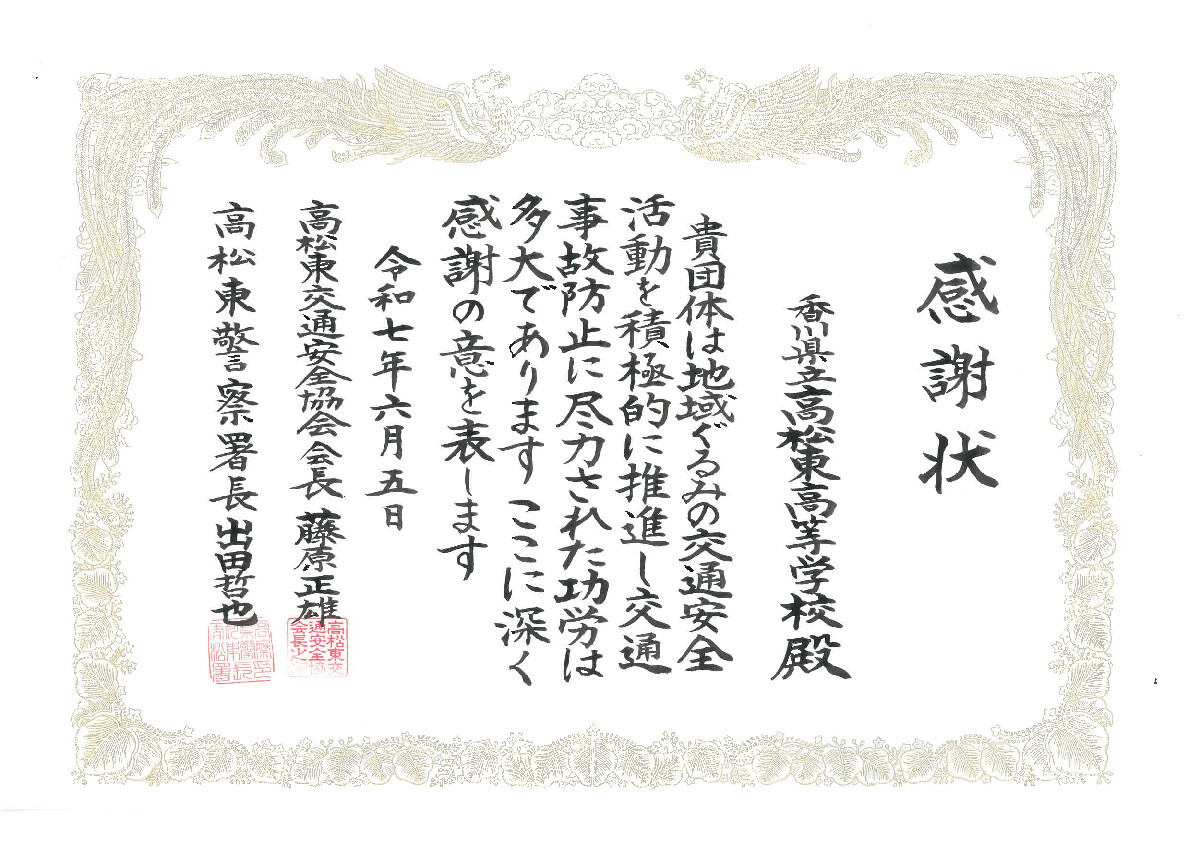 感謝状
香川県立高松東高等学校殿
貴団体は地域ぐるみの交通安全
活動を積極的に推進し交通
事故防止に尽力された功労は
多大であります ここに深く
感謝の意を表します
令和七年六月五日
高松東交通安全協会会長 藤原正雄
高松東交
通安全協
会長之印
高松東警察署長 出田哲也